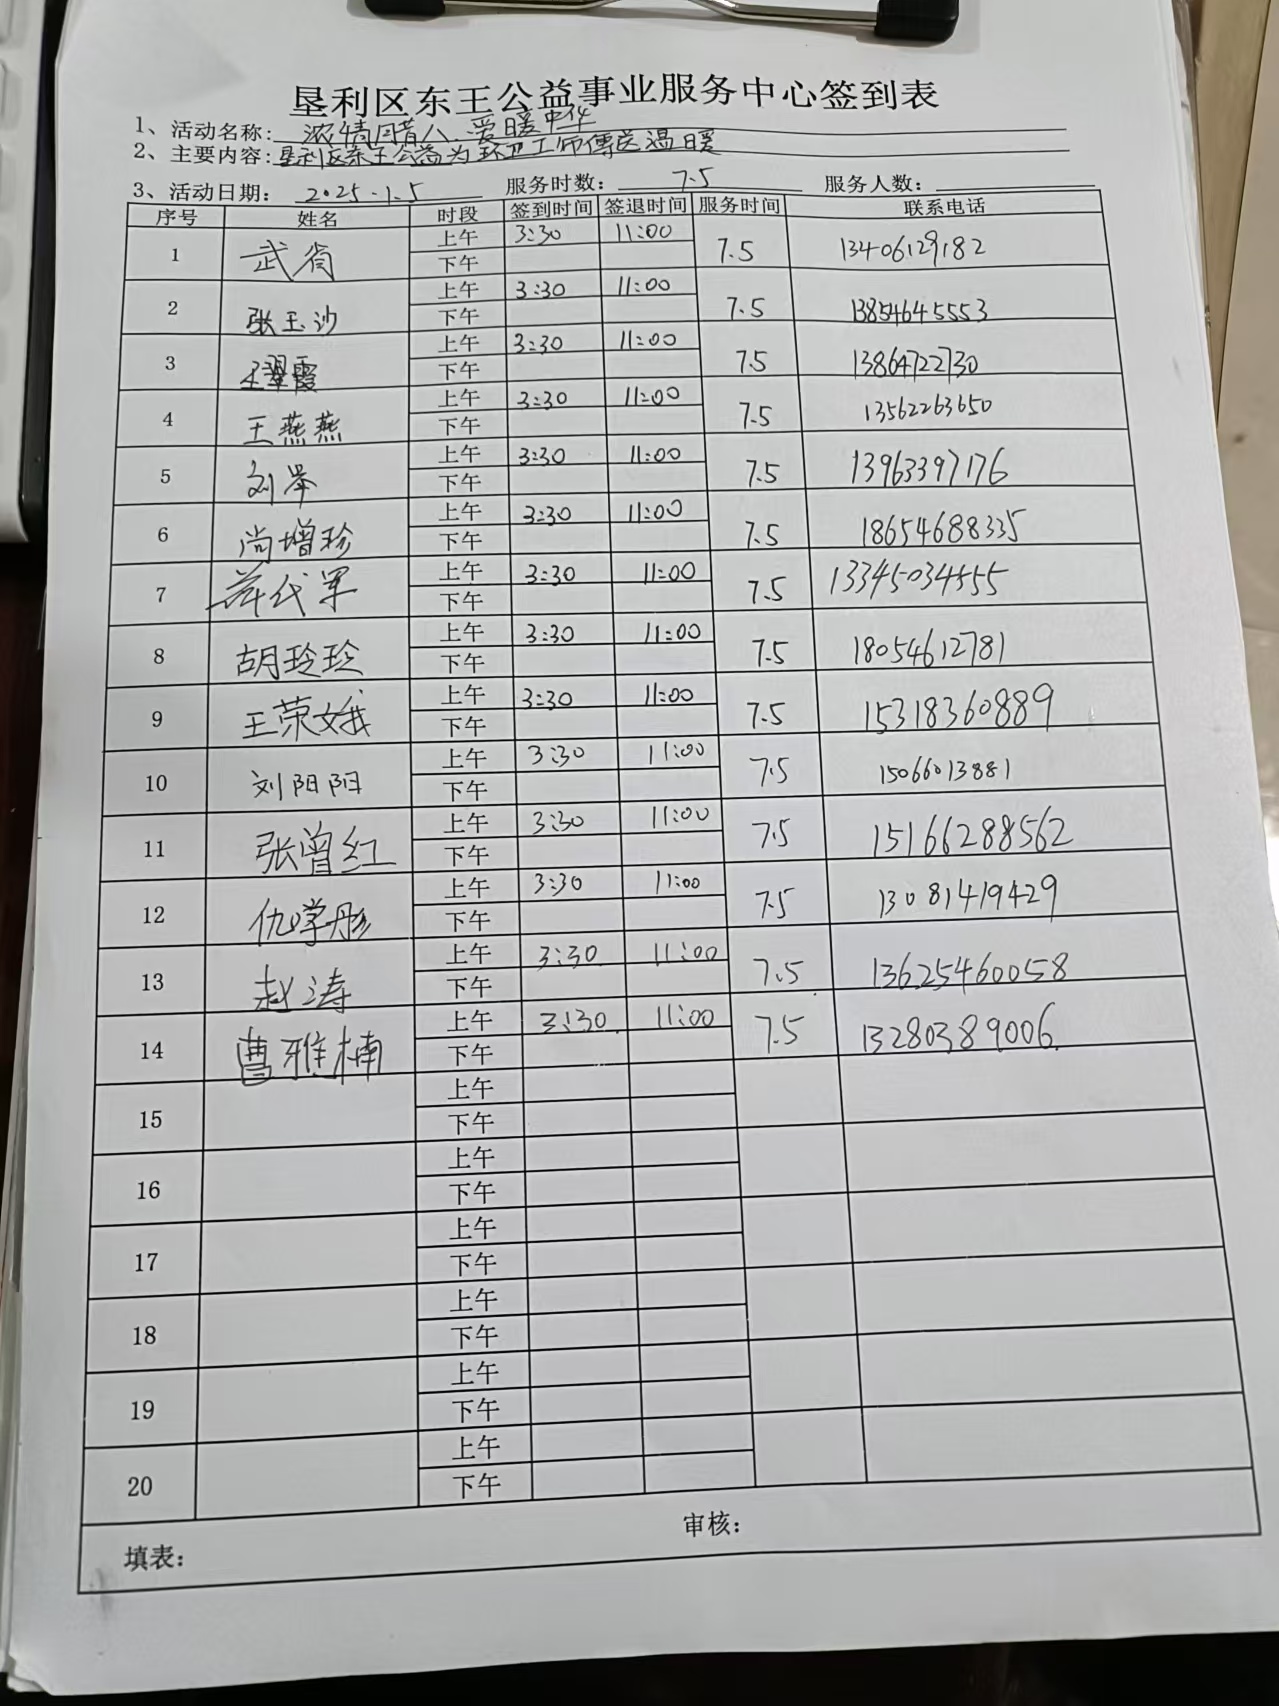 垦利区东王公益事业服务中心签到表
1、活动名称: 浓情腊八 爱暖中华
2、主要内容: 垦利区东王公益为环卫工师傅送温暖
3、活动日期: 2025.1.5 服务时数: 7.5 服务人数:
序号 姓名 时段 签到时间 签退时间 服务时间 联系电话
1 武 上午 3:30 11:00 7.5 13406129182
下午
2 张玉沙 上午 3:30 11:00 7.5 13854645553
下午
3 王翠霞 上午 3:30 11:00 7.5 13864722730
下午
4 王燕燕 上午 3:30 11:00 7.5 13562263650
下午
5 刘举 上午 3:30 11:00 7.5 13963397176
下午
6 尚增珍 上午 3:30 11:00 7.5 18654688335
下午
7 薛代军 上午 3:30 11:00 7.5 13345034555
下午
8 胡玲玲 上午 3:30 11:00 7.5 18054612781
下午
9 王荣娥 上午 3:30 11:00 7.5 15318360889
下午
10 刘阳阳 上午 3:30 11:00 7.5 15066013881
下午
11 张曾红 上午 3:30 11:00 7.5 15166288562
下午
12 仇学彤 上午 3:30 11:00 7.5 13081419429
下午
13 赵涛 上午 3:30 11:00 7.5 13625460058
下午
14 曹雅楠 上午 3:30 11:00 7.5 13280389006
下午
15 上午
下午
16 上午
下午
17 上午
下午
18 上午
下午
19 上午
下午
20 上午
下午
填表: 审核: